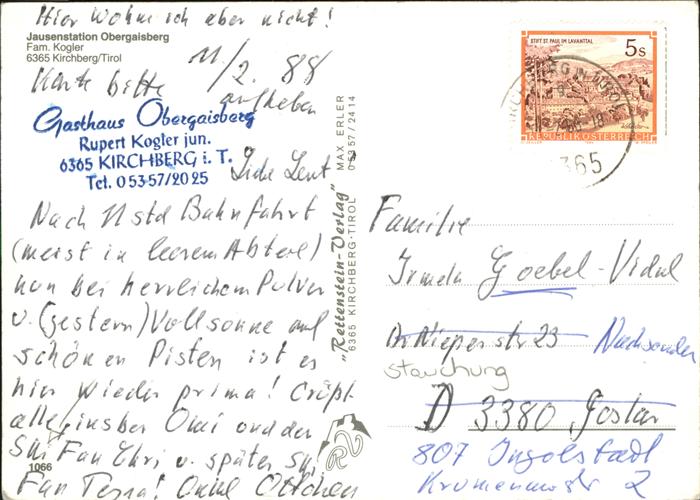 Hier Wohne ich aber nicht!
Jausenstation Obergaisberg
Fam. Kogler
6365 Kirchberg/Tirol
11/2. 88
Karte bitte aufheben
Gasthaus Obergaisberg
Rupert Kogler jun.
6365 KIRCHBERG i. T.
Tel. 0 53 57/20 25
Liebe Leut
Nach 11 Std Bahnfahrt
(meist in leerem Abteil)
nun bei herrlichem Pulver
u. (gestern) Vollsonne auf
schönen Pisten ist es
hier wieder prima! Grüßt
alle, insbes Omi und der
Ski Fan Chri u. später
Fan Terna! Onkel Ottchen
1066
"Rettenstein-Verlag" MAX ERLER
6365 KIRCHBERG-TIROL 0 53 57/2414
STIFT ST. PAUL IM LAVANTTAL
5 s
REPUBLIK ÖSTERREICH
365
Familie
Irmela Goebel-Vidal
Nieperstr 23 Nachsenden
stauchung
D 3380 Goslar
807 Ingolstadt
2